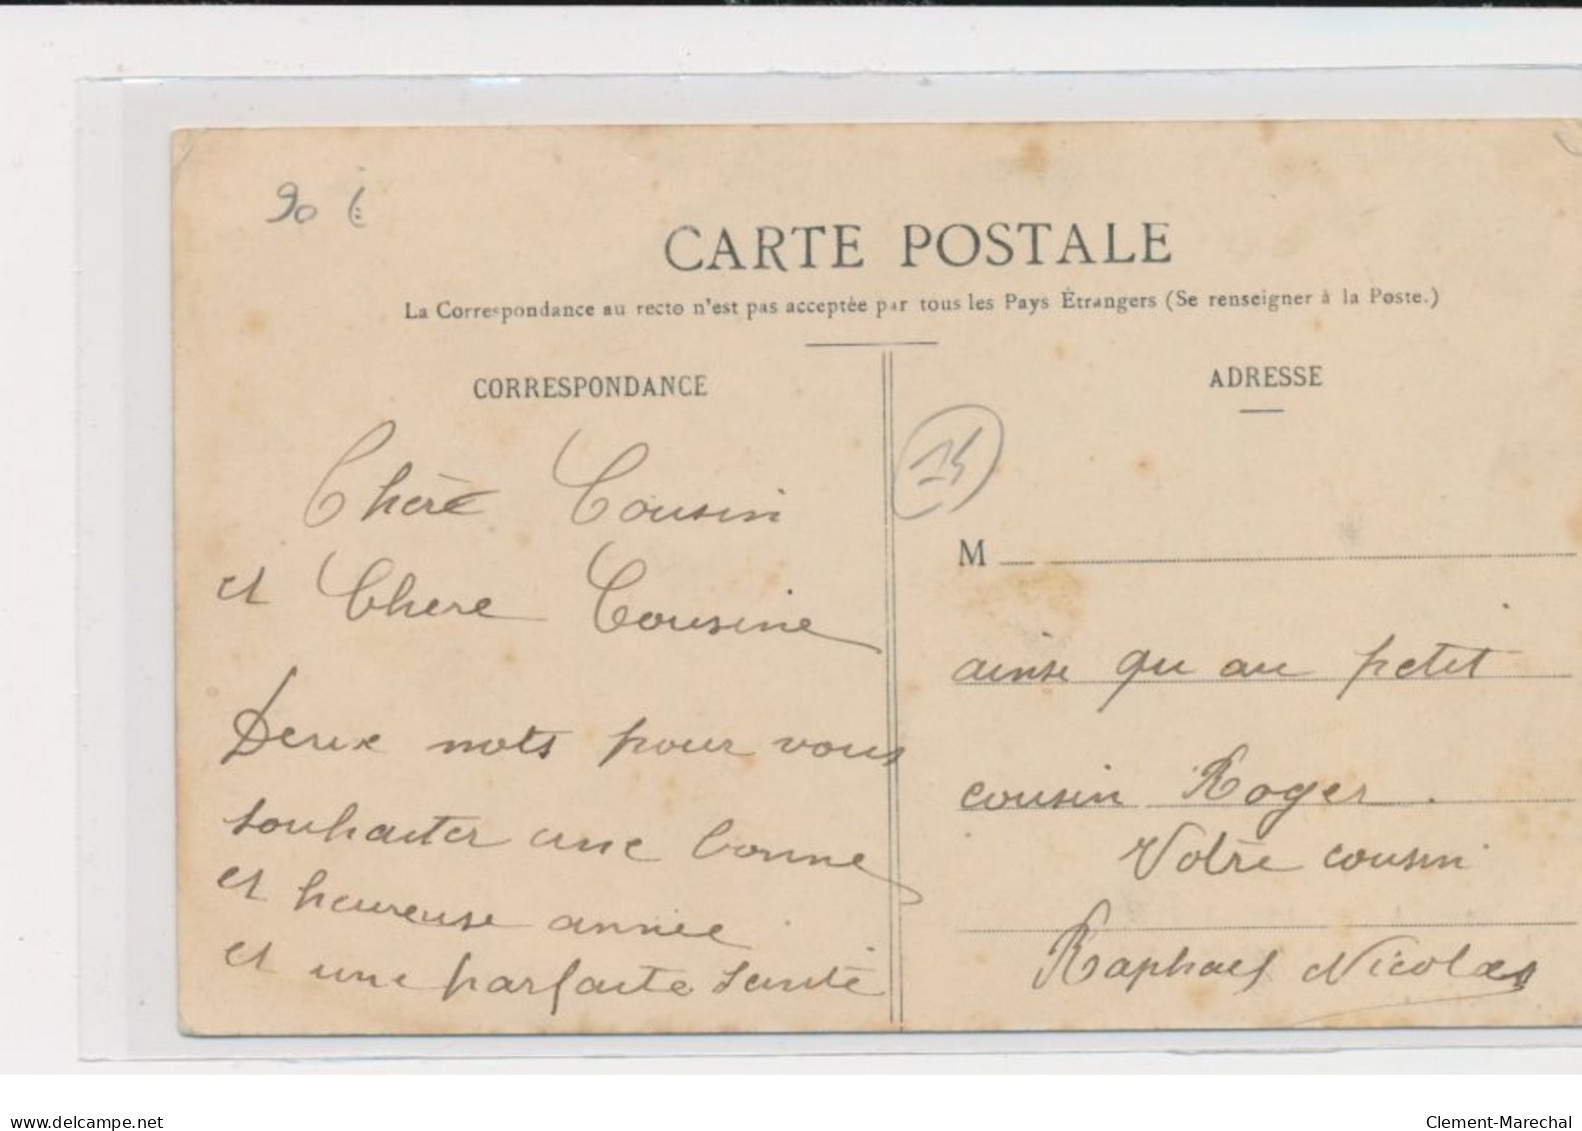 90 €
CARTE POSTALE
La Correspondance au recto n'est pas acceptée par tous les Pays Étrangers (Se renseigner à la Poste.)
CORRESPONDANCE
Chère Cousin
et Chere Cousine
Deux mots pour vous
souhaiter une bonne
et heureuse année
et une parfaite santé
ADRESSE
M
ainsi qu au petit
cousin Roger.
Votre cousin
Raphael Nicolas
www.delcampe.net
Clement-Marechal